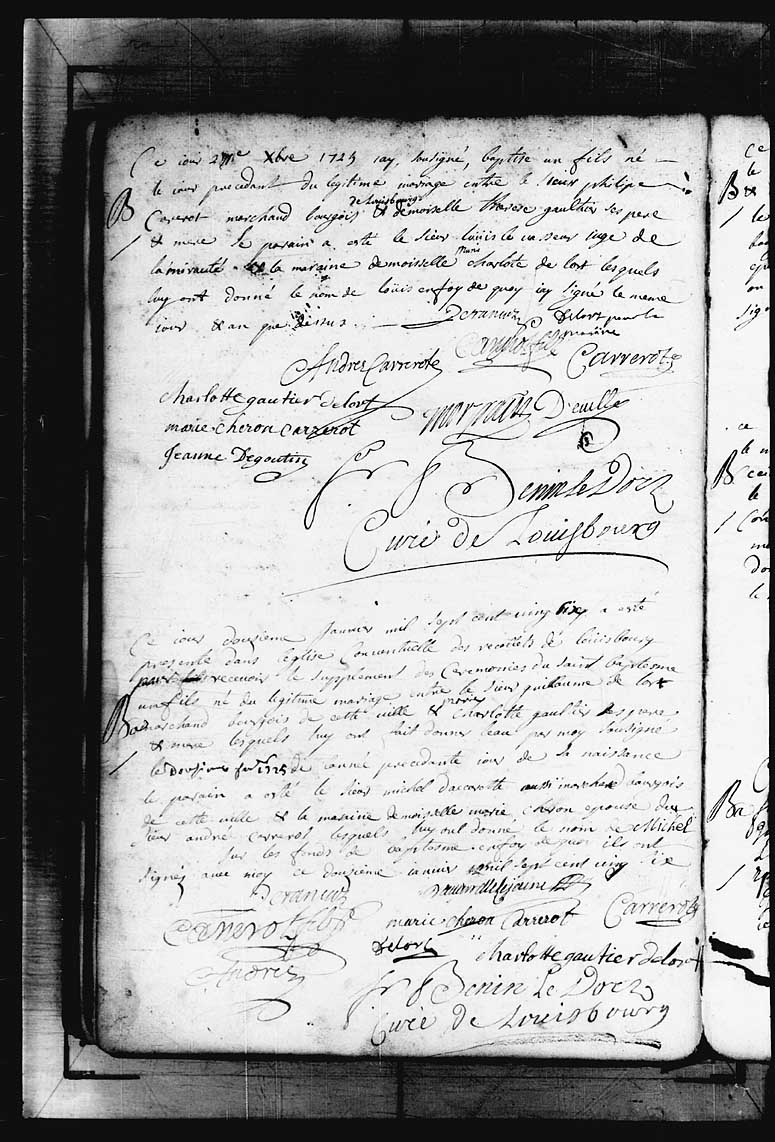 Ce jour 27me Xbre 1725 jay, sousigné, baptisé un fils né
le jour precedant du legitime mariage entre le sieur philipe
B
Carerot marchand bourgois de Louisbourg & demoiselle therese gaultier ses pere
& mere le parain a esté le sieur louis le vasseur juge de
lamirauté & la maraine demoisselle marie charlote de lort lesquels
luy ont donné le nom de louis en foy de quoy jay signé le meme
jour & an que dessus
Delort pour la
marine
Andres Carrerote
Carrerot fils
Carrerot
charlotte gautier delort
morpain
D'euille
marie cheron carrerot
Jeanne Degoutin
fr
Benin Le Dorz
Curé de Louisbourg
Ce jour douzième janvier mil sept cent vingt six a esté
presenté dans leglise Conventuelle des recolets de louisbourg
pour recevoir le supplement des Ceremonies du saint baptesme
un fils né du legitime mariage entre le sieur guillaume de lort
B
marchand bourjois de cette ville & marie charlotte gaultier ses pere
& mere lesquels luy ont fait donner leau par moy sousigné
1725 de lannée precedante jour de sa naissance
le parain a esté le sieur michel daccarette aussi marchand bourgois
de cette ville & la maraine demoiselle marie cheron epouse du
sieur andré carrerot lesquels luy ont donné le nom de Michel
sur les fonds de baptesme en foy de quoy ils ont
signés avec moy ce douzième janvier mil sept cent vingt six
Carrerot fils
marie cheron Carrerot
Carrerot
Delort
charlotte gautier delort
Andrez
fr Benin Le Dorz
Curé de Louisbourg